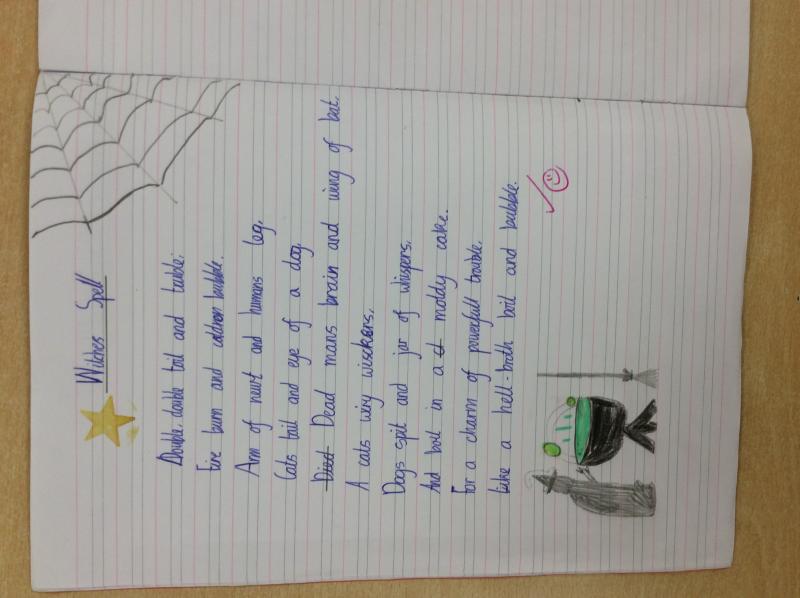 Witches Spell
Double, double toil and tuible;
Fire burn and coldron bubble.
Arm of newt and humans leg,
Cats tail and eye of a dog
Died Dead mans brain and wing of bat.
A cats wiry wisckers,
Dogs spit and jar of whispers,
And boil in a d moldy cake.
For a charm of powerfull trouble.
Like a hell-broth boil and bubble.